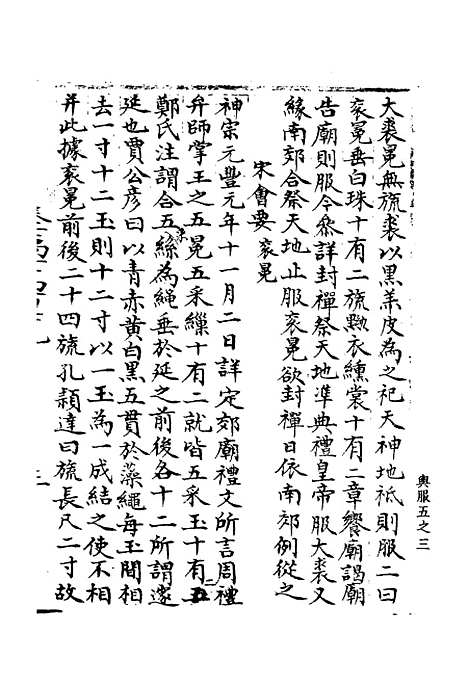 大裘冕無旒裘以黑羔皮為之祀天神地祗則服二曰
袞冕垂白珠十有二旒黝衣纁裳十有二章饗廟謁廟
告廟則服今叅詳封禪祭天地準典禮皇帝服大裘又
緣南郊合祭天地止服袞冕欲封禪日依南郊例從之
宋會要 袞冕
神宗元豐元年十一月二日詳定郊廟禮文所言周禮
弁師掌王之五冕五采繅十有二就皆五采玉十有二
鄭氏注謂合五絲為繩垂於延之前後各十二所謂邃
延也賈公彥曰以青赤黃白黑五貫於藻繩每玉間相
去一寸十二玉則十二寸以一玉為一成結之使不相
并此據袞冕前後二十四旒孔穎達曰旒長尺二寸故
輿服五之三